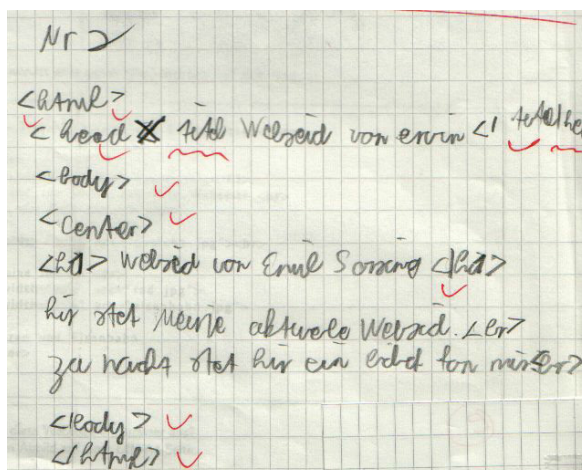 Nr 2
<html>
<head titel Webseid von erwin </titel/he
<body>
<center>
<h1> Webseid von Emil </h1>
hir stet meine aktuele Webseid. <br>
zu nachst stet hir ein bild fon mir <br>
</body>
</html>